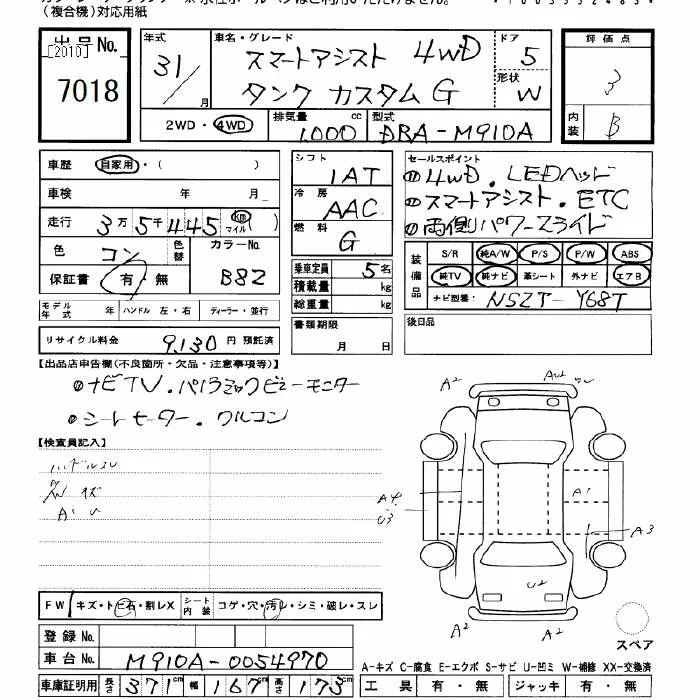 (複合機)対応用紙
出品No.
[2010]
7018
年式
31/
月
車名・グレード
スマートアシスト 4WD
タンク カスタム G
ドア
5
形状
W
評価点
3
内装
B
2WD・4WD
排気量
1,000
cc
型式
DBA-M910A
車歴
自家用・( )
車検
年 月
走行
3万5千445
km
マイル
( )
色
コン
色替
カラーNo.
B82
保証書
有・無
モデル年式
年
ハンドル
左・右
ディーラー・並行
リサイクル料金
9,130 円 預託済
シフト
1AT
冷房
AAC
燃料
G
乗車定員
5名
積載量
kg
総重量
kg
書類期限
月 日
セールスポイント
4WD.LEDヘッド
スマートアシスト.ETC
両側パワースライド
装備品
S/R
純A/W
P/S
P/W
ABS
純TV
純ナビ
革シート
外ナビ
エアB
ナビ型番:
NSZT-Y68T
後日品
【出品店申告欄(不良箇所・欠品・注意事項等)】
ナビTV.パノラミックビューモニター
シートヒーター.クルコン
【検査員記入】
ハンドルスレ
内 キズ
AU
FW
キズ・トビ石・割レX
シート内装
コゲ・穴・汚レ・シミ・破レ・スレ
登録No.
車台No.
M910A-0054970
車庫証明用
長さ
371cm
幅
167cm
高さ
173cm
A2
A2
A1
A4
U3
A3
U2
A2
A2
スペア
A-キズ C-腐食 E-エクボ S-サビ U-凹ミ W-補修 XX-交換済
工具
有・無
ジャッキ
有・無